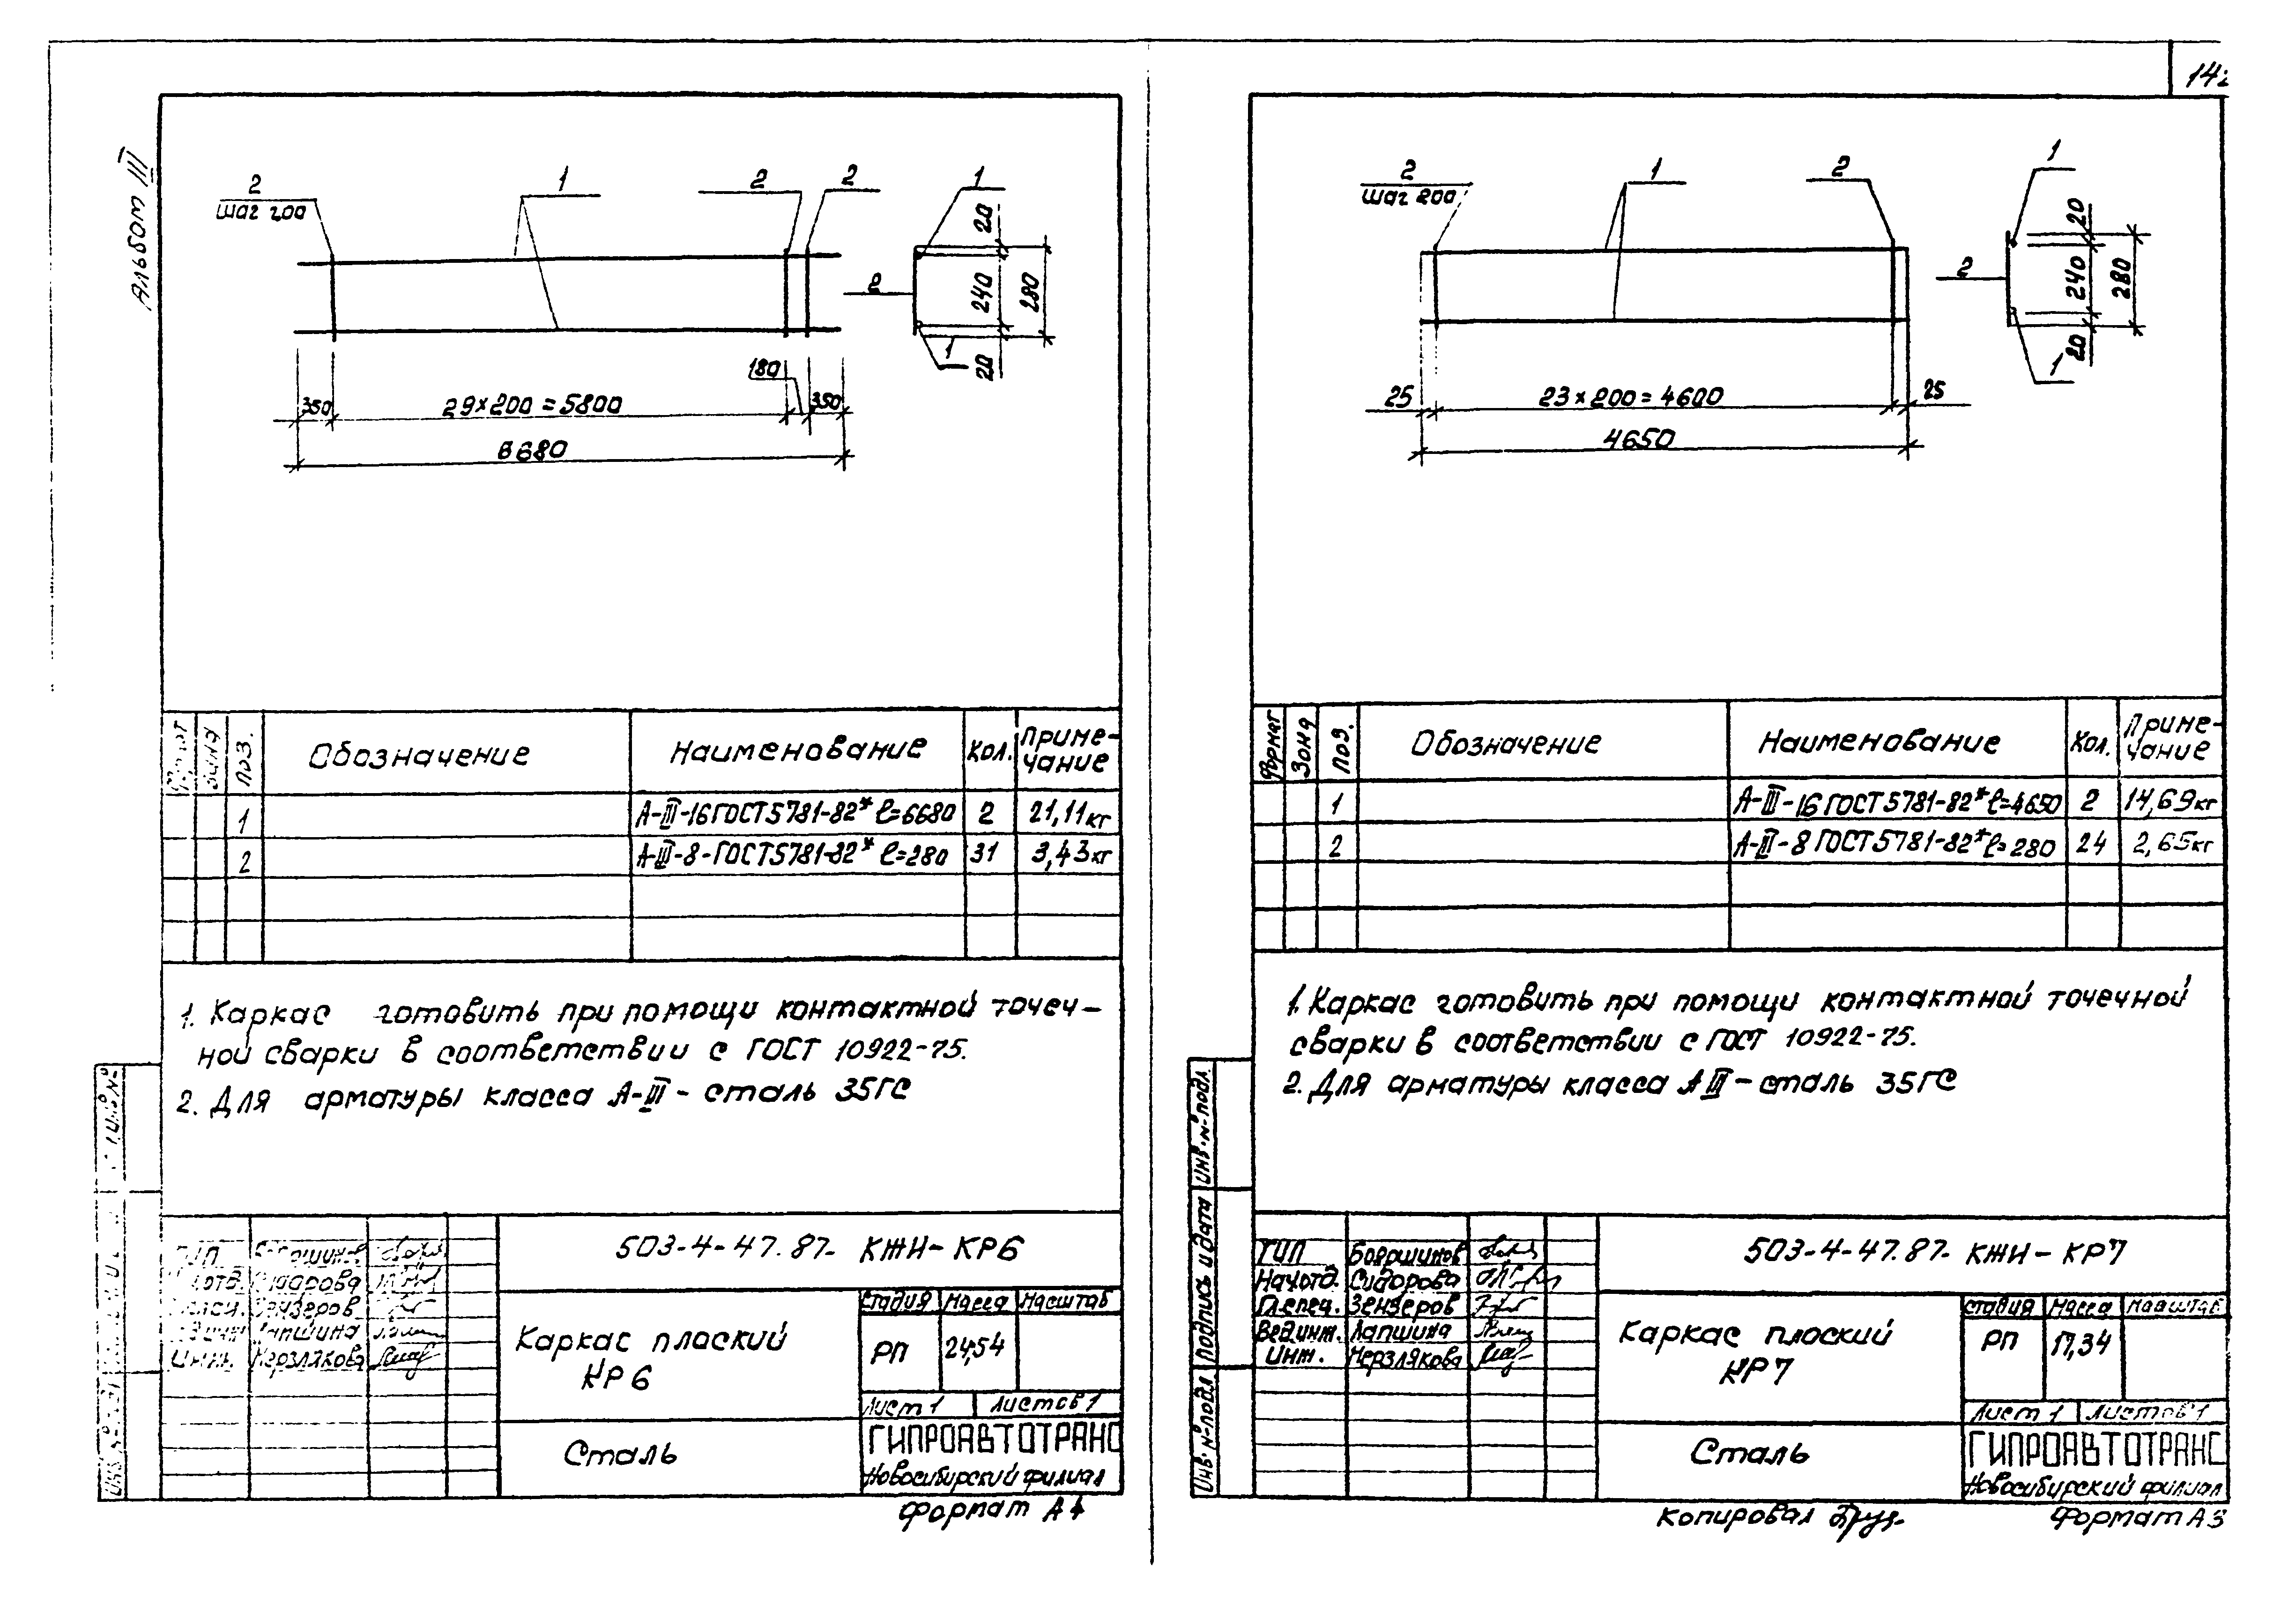 Альбом III
2
шаг 200
1
2
2
1
20
2
240
280
1
20
180
350
29×200=5800
350
6680
Обозначение
Наименование
Кол.
Приме-
чание
поз.
1
А-III-16 ГОСТ 5781-82* ℓ=6680
2
21,11кг
2
А-III-8-ГОСТ 5781-82* ℓ=280
31
3,43кг
1. Каркас готовить при помощи контактной точеч-
ной сварки в соответствии с ГОСТ 10922-75.
2. Для арматуры класса А-III - сталь 35ГС
503-4-47.87- КЖИ-КР6
Сидорова
Инж. Мерзлякова
Каркас плоский
КР6
Стадия Масса Масштаб
РП
24,54
Лист 1
Листов 1
Сталь
ГИПРОАВТОТРАНС
Новосибирский филиал
Формат А4
14
2
шаг 200
1
2
1
20
2
240
280
20
1
25
23×200=4600
25
4650
Формат
Зона
поз.
Обозначение
Наименование
Кол.
Приме-
чание
1
А-III-16 ГОСТ 5781-82* ℓ=4650
2
14,69кг
2
А-III-8 ГОСТ 5781-82* ℓ=280
24
2,65кг
1. Каркас готовить при помощи контактной точечной
сварки в соответствии с ГОСТ 10922-75.
2. Для арматуры класса А III - сталь 35ГС
Инв. № подл.
Подпись и дата
Инв. № подл
503-4-47.87- КЖИ-КР7
ГИП Бояршинов
Нач.отд. Сидорова
Гл.спец. Зензеров
Вед.инж. Лапшина
Инж. Мерзлякова
Каркас плоский
КР7
Стадия Масса Масштаб
РП
17,34
Лист 1
Листов 1
Сталь
ГИПРОАВТОТРАНС
Новосибирский филиал
Копировал
Формат А3